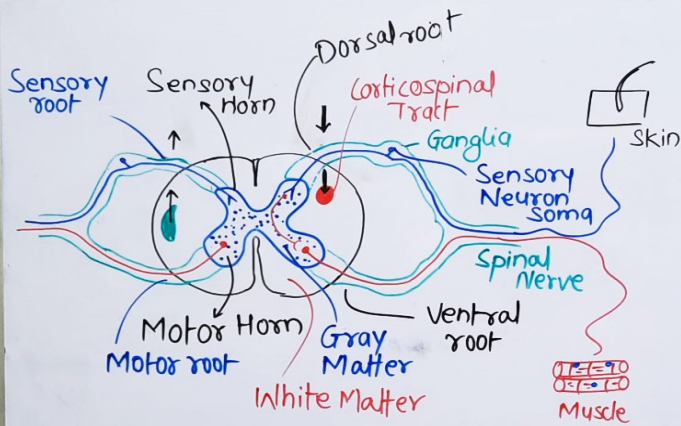 Dorsal root
Sensory
root
Sensory
Horn
Corticospinal
Tract
Ganglia
Skin
Sensory
Neuron
Soma
Spinal
Nerve
Motor Horn
Motor root
Gray
Matter
Ventral
root
White Matter
Muscle